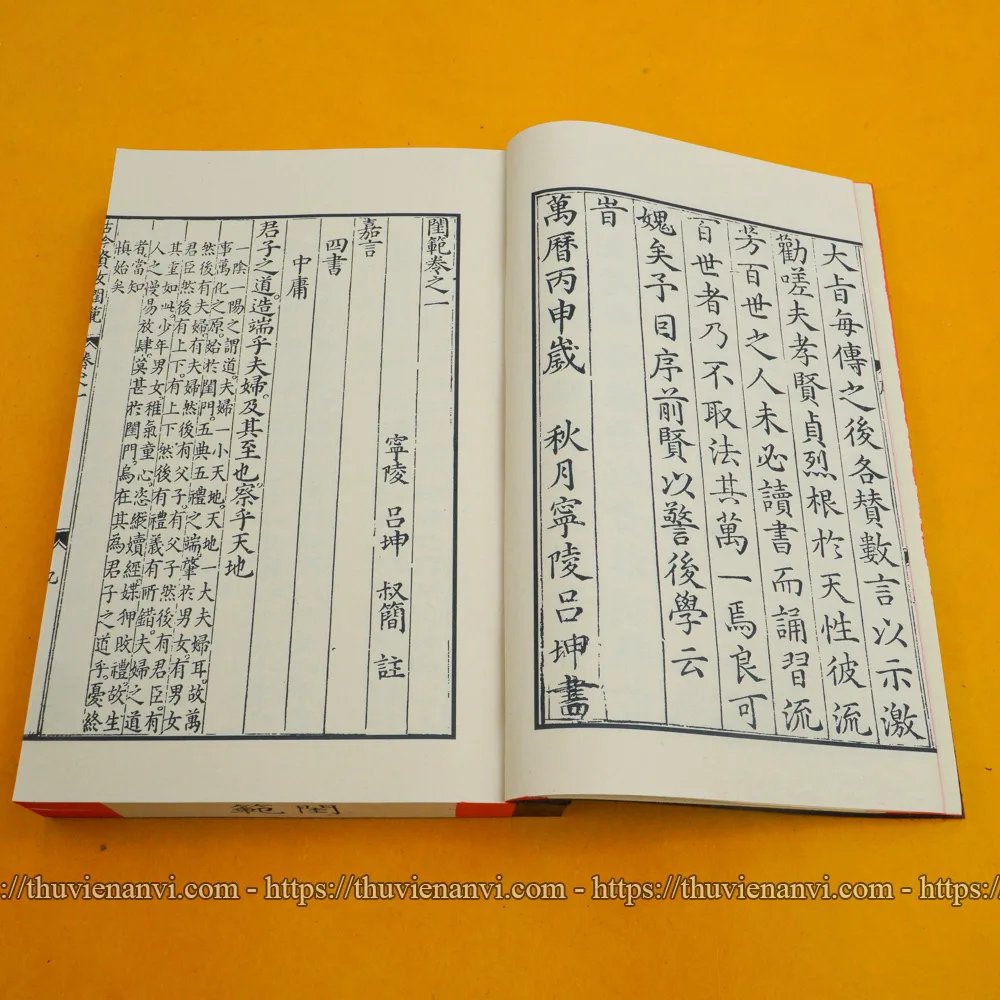 大旨每傳之後各賛數言以示激
勸嗟夫孝賢貞烈根於天性彼流
芳百世之人未必讀書而誦習流
百世者乃不取法其萬一焉良可
媿矣予因序前賢以警後學云
旹
萬曆丙申歲　秋月寧陵呂坤書
閨範卷之一
寧陵　呂坤　叔簡　註
嘉言
四書
中庸
君子之道。造端乎夫婦。及其至也。察乎天地
一陰一陽之謂道。夫婦一小天地。天地一大夫婦耳。故萬
事萬化之原。始於閨門。五典五禮之端。肇於男女。有男女
然後有夫婦。有夫婦然後有父子。有父子然後有君臣。有
君臣然後有上下。有上下然後有禮義有所錯。夫婦之道
其重如此。少年男女。稚氣童心。恣媒狎敗禮。故生
人之慢易放肆。莫甚於閨門。烏在其為君子之道乎。憂終
者當知
慎始矣
古今賢女閨範
卷之一
九
閨範
://thuvienanvi.com - https://thuvienanvi.com - https://thuvienanvi.com - https:/